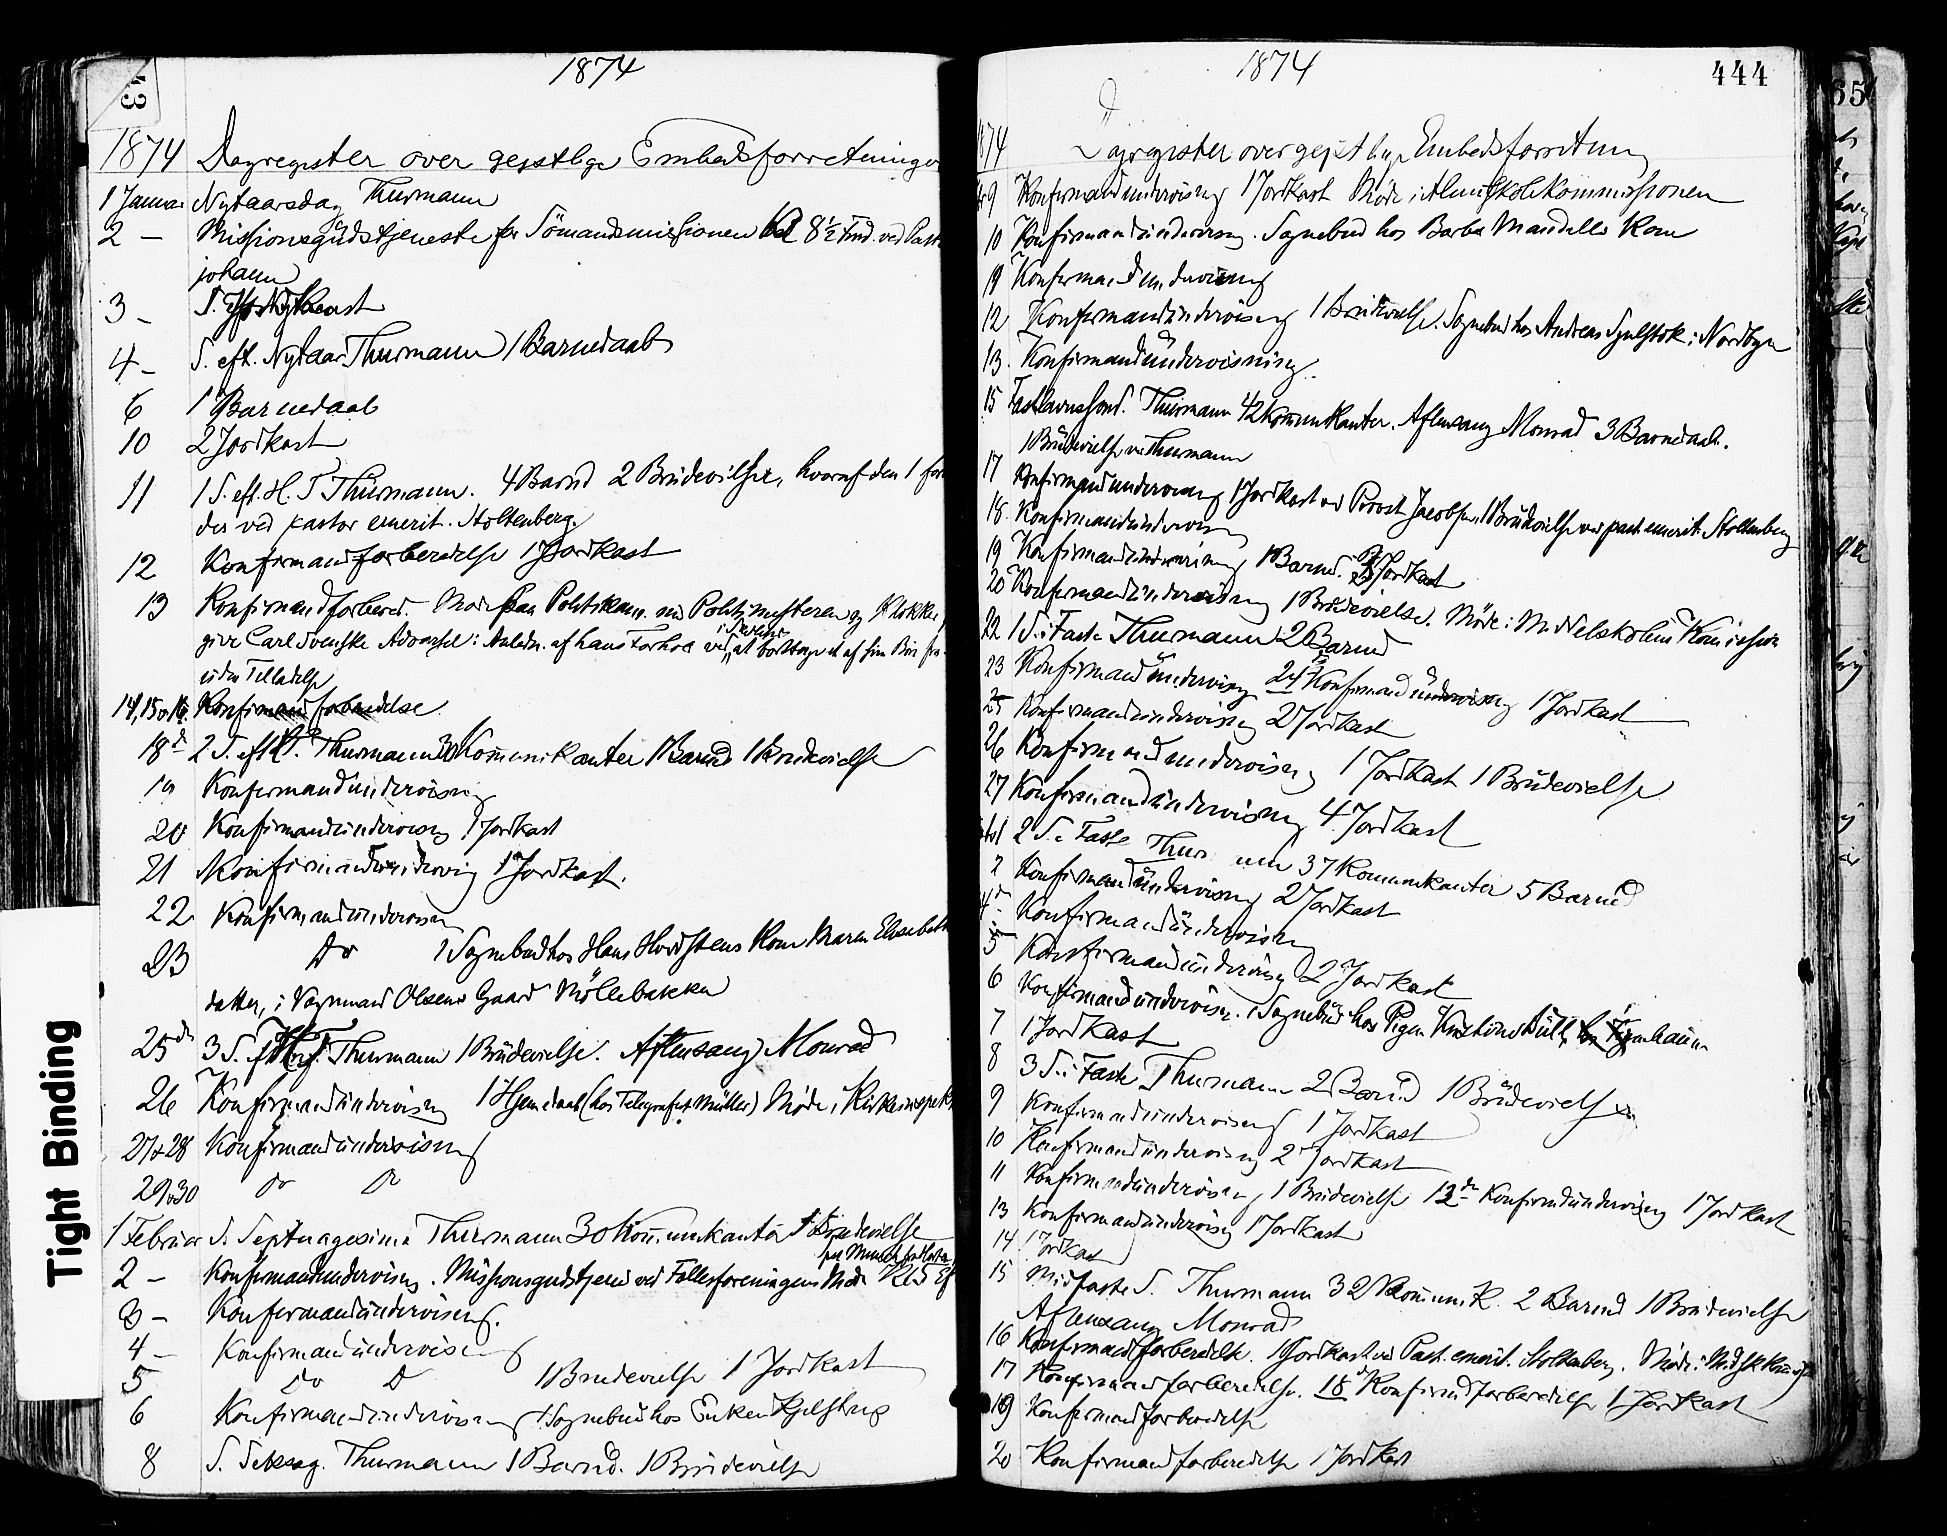 1874
1874 Dagregister over geistlige Embedsforretninger
1 Januar Nytaarsdag Thurmann
2 — Missionsgudstjeneste for Sömandsmissionen Kl 8½ Fmd. ved Past.
johann
3 –
4 – S. eft. Nytaar Thurmann 1 Barnedaab
6 1 Barnedaab
10 2 Jordkast
11 1 S. eft. H. 3 K. Thurmann. 4 Barnd 2 Brüdevielser, hvoraf den 1 for
des ved pastor emerit. Stoltenberg.
12 Konfirmandforberedelse 1 Jordkast
13 Konfirmandforbered. Möde paa Politikam. med Politimesteren og Klokker,
give Carl Svenske Advarsel i Anledn. af hans Forhold ved at borttage et af sine Börn fra
uden Tilladelse
14, 15 o 16. Konfirmandforberedelse
18d 2 S. eft. Thurmann Kommunikanter 1 Barnd 1 Brüdevielse
19 Konfirmandündervisning
20 Konfirmandündervisng 1 Jordkast
21 Konfirmandundervisng 1 Jordkast.
22 Konfirmandundervisn
23 Do 1 Sognebud hos Hans Kone Maren Elisabeth
datter, i Vognmand Olsens Gaard Möllebakken
25de 3 S. eft. Thurmann 1 Brüdevielse. Aftensang Monrad
26 Konfirmandündervisng 1 Hjemdaab (hos Telegrafist Müller) Möde i Kirkeinspekt
27 o 28 Konfirmandündervisning
29 o 30 Do Do
1 Februar S. Septuagesima Thurmann 30 Kommunikanter 1 Brüdevielse
2 — Konfirmandundervisng. Missionsgudstjen. ved Fællesforeningens Möde Kl 5 Ef
3 — Konfirmandündervisning.
4 – Konfirmandündervisning
5 Do D 1 Brudevielse 1 Jordkast
6 Konfirmandundervisning 1 Sognebud hos Enken Kjelstrup
8 S. Seksag. Thurmann 1 Barnd. 1 Brüdevielse
1874
444
Dagregister over geistlige Embedsforretning
9 Konfirmandundervisng 1 Jordkast Möde i Almueskolekommissionen
10 Konfirmandundervisng. Sognebud hos Barber Mandelle Kone
Konfirmandundervisning
12 Konfirmandündervisng 1 Brüdevielse. Sognebud hos Andreas i Nordbyen
13. Konfirmandündervisning.
15 Fastelavnssönd. Thürmann 42 Kommunikanter. Aftensang Monrad 3 Barnedaab.
1 Brüdevielse ved Thurmann
17 Konfirmandundervisng 1 Jordkast ved Provst Jacobsen, 1 Brüdevielse ved past. emerit. Stoltenberg
18. Konfirmandundervisn
19 Konfirmandundervisning 1 Barnd. Jordkast
20 Konfirmandundervisning 1 Brüdevielse. Möde i Middelskolens Komission
22 1 S. i Faste Thurmann 2 Barnd
23 Konfirmandündervisng 24de Konfirmandündervisng 1 Jordkast
25 Konfirmandundervisng 2 Jordkast
26 Konfirmandundervisng 1 Jordkast 1 Brüdevielse
27 Konfirmandündervisning 4 Jordkast
2 S. i Faste Thurmann 37 Kommunkanter 5 Barnd
2 Konfirmandündervisng 2 Jordkast
4de Konfirmandündervisning
5 Konfirmandündervisng 2 Jordkast
6 Konfirmandundervisn. 1 Sognebud hos Pigen
7 1 Jordkast
8 3 S. i Faste Thurmann 2 Barnd 1 Brüdevielse
9 Konfirmandundervisning 1 Jordkast
10 Konfirmandündervisng 2 Jordkast
11 Konfirmandündervisng, 1 Brüdevielse 12de Konfirmdundervisng 1 Jordkast
13 Konfirmandündervisng 1 Jordkast
14 1 Jordkast
15 Midfaste S. Thurmann 32 Kommunik. 2 Barnd 1 Brüdevielse
Aftensang Monrad
16 Konfirmandforberedelse. 1 Jordkast ved Past. emerit. Stoltenberg. Möde i
17 Konfirmandforberedelse. 18d Konfirmdforberedelse 1 Jordkast
19 Konfirmandforberedelse
20 Konfirmandforberedelse 1 Jordkast
65
Tight Binding